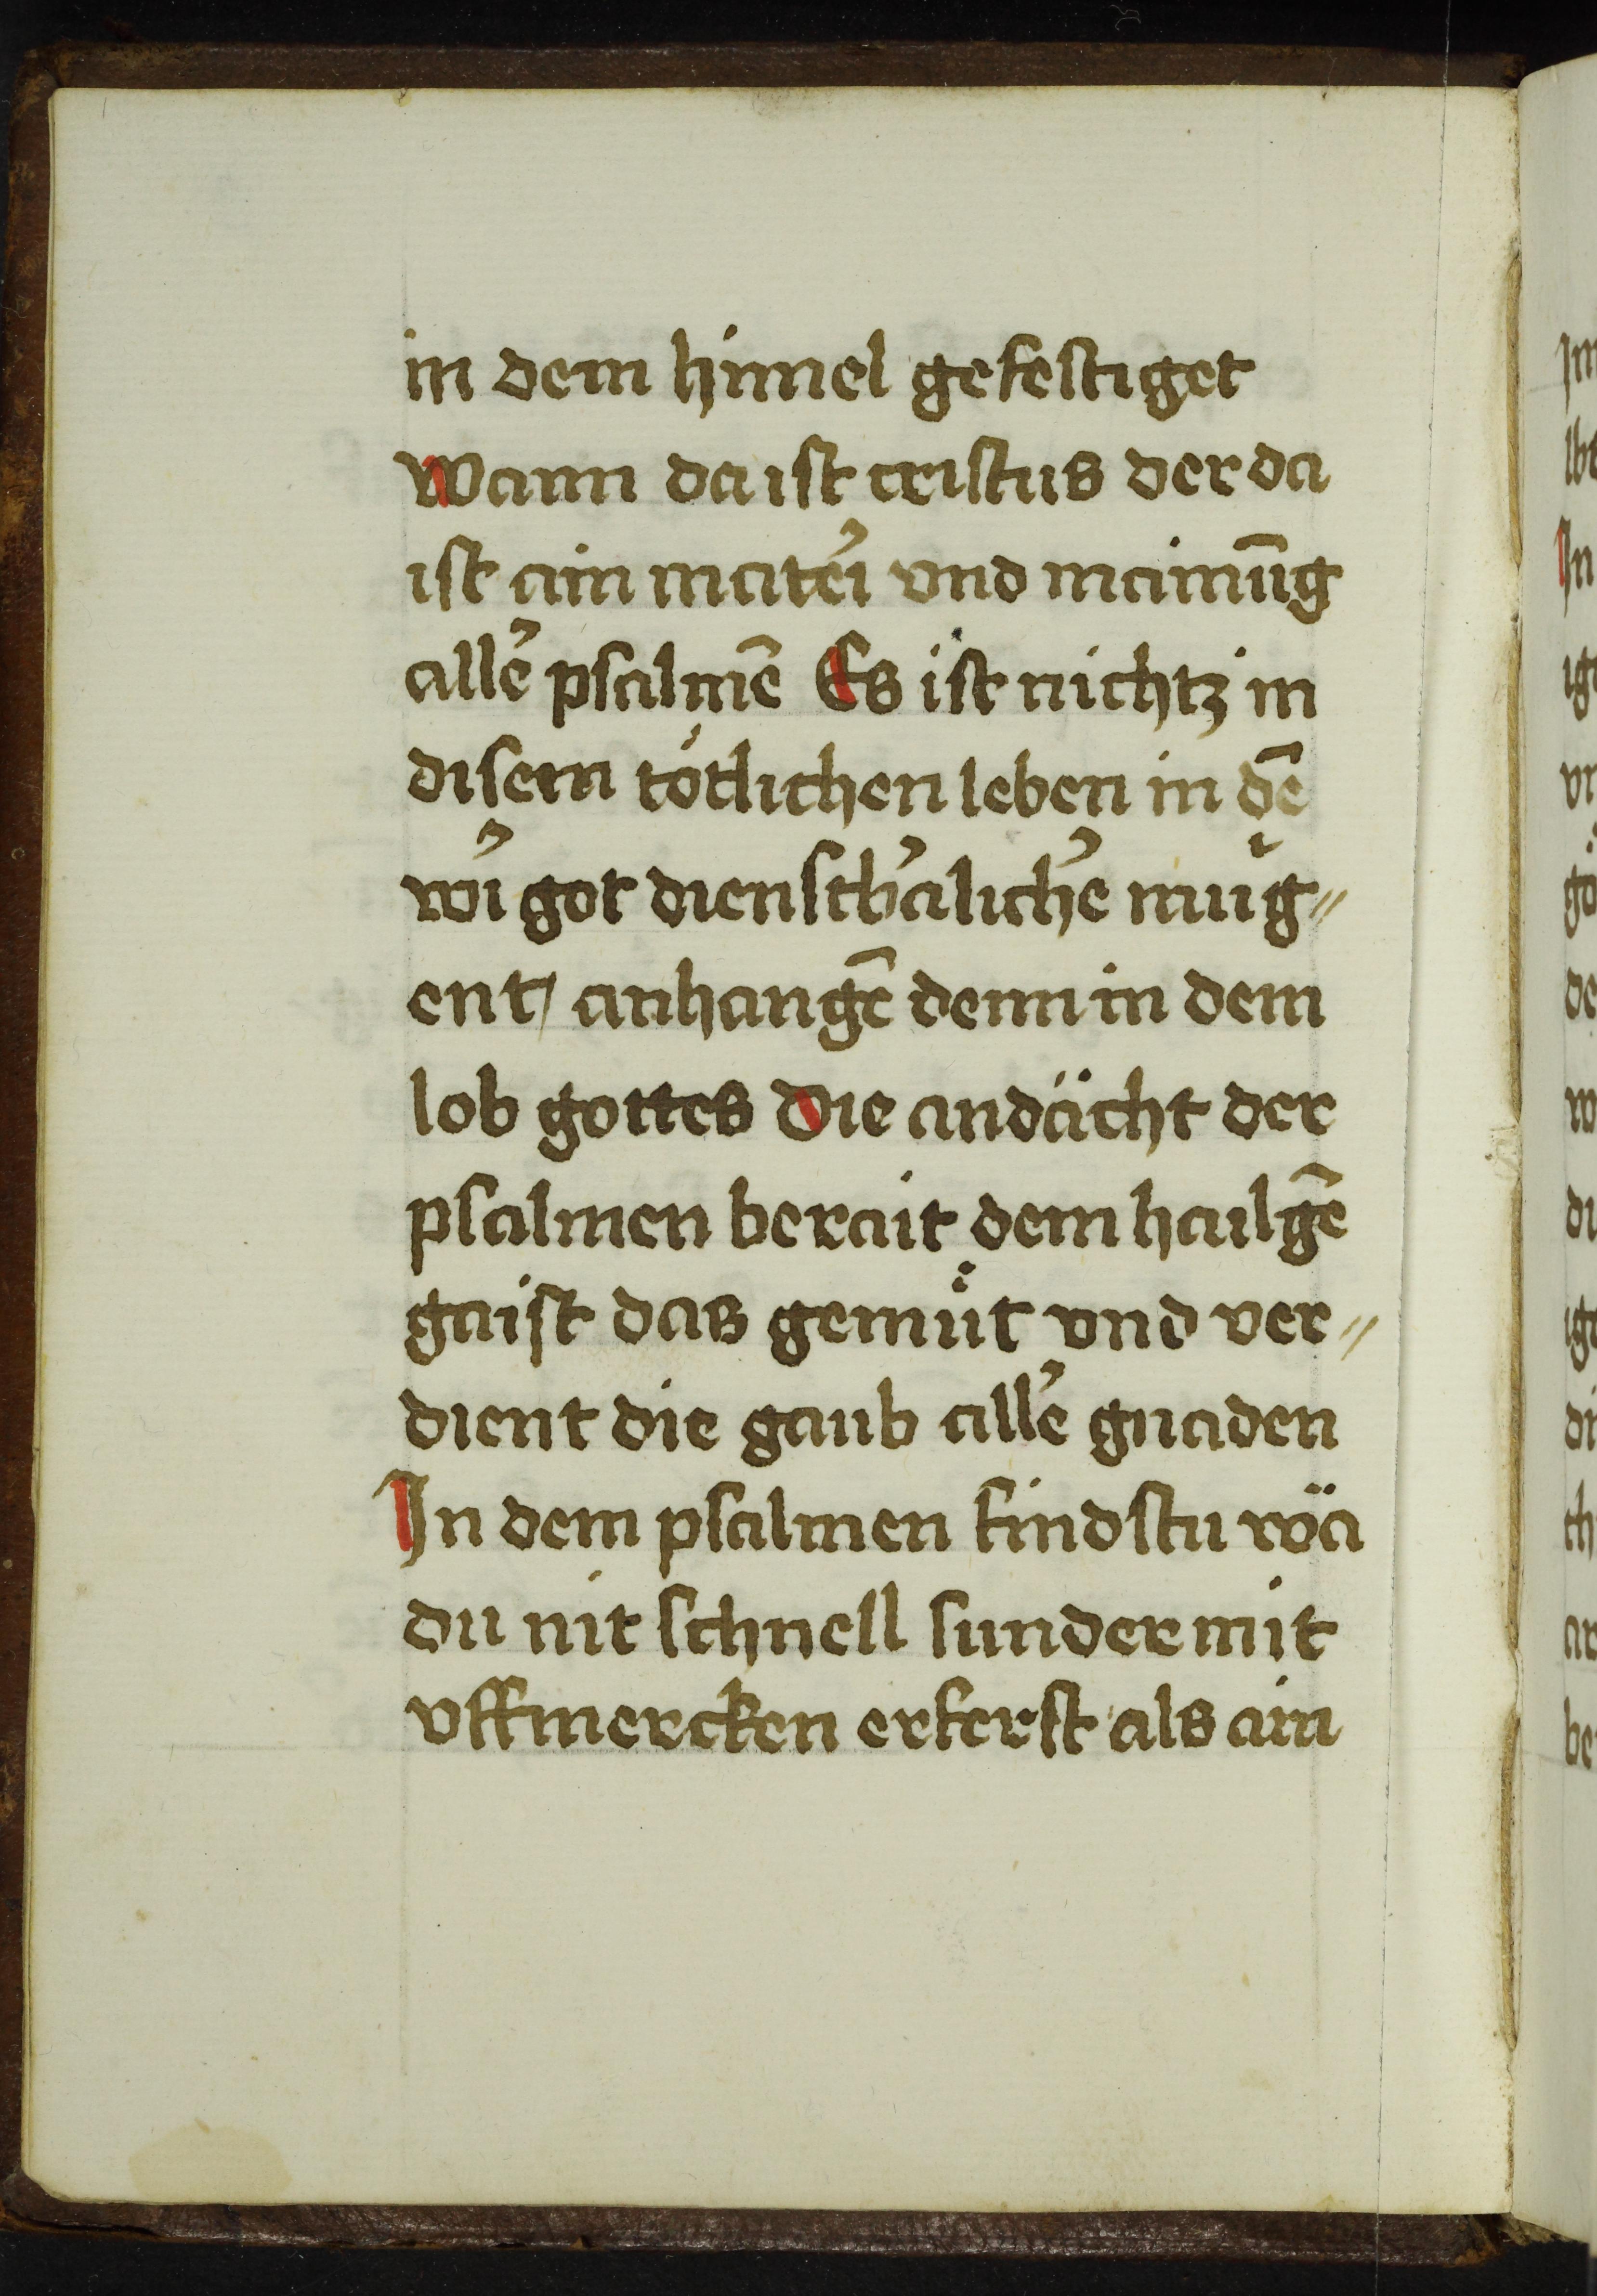 in dem himel gefestiget
Wann da ist cristus der da
ist ain mateꝛ̕i vnd mainūg
alle᷑ psalmē Es ist nichtz in
disem tötlichen leben in dē
wi᷑ got dienstb᷑alich᷑e mu̇g〃
ent / anhangē denn in dem
lob gottes Die andächt der
psalmen berait dem hailgē
gaist das gemüt vnd ver〃
dient die gaub alle᷑ gnaden
In dem psalmen findstu wä
du nit schnell sunder mit
vffmercken erferst als ain